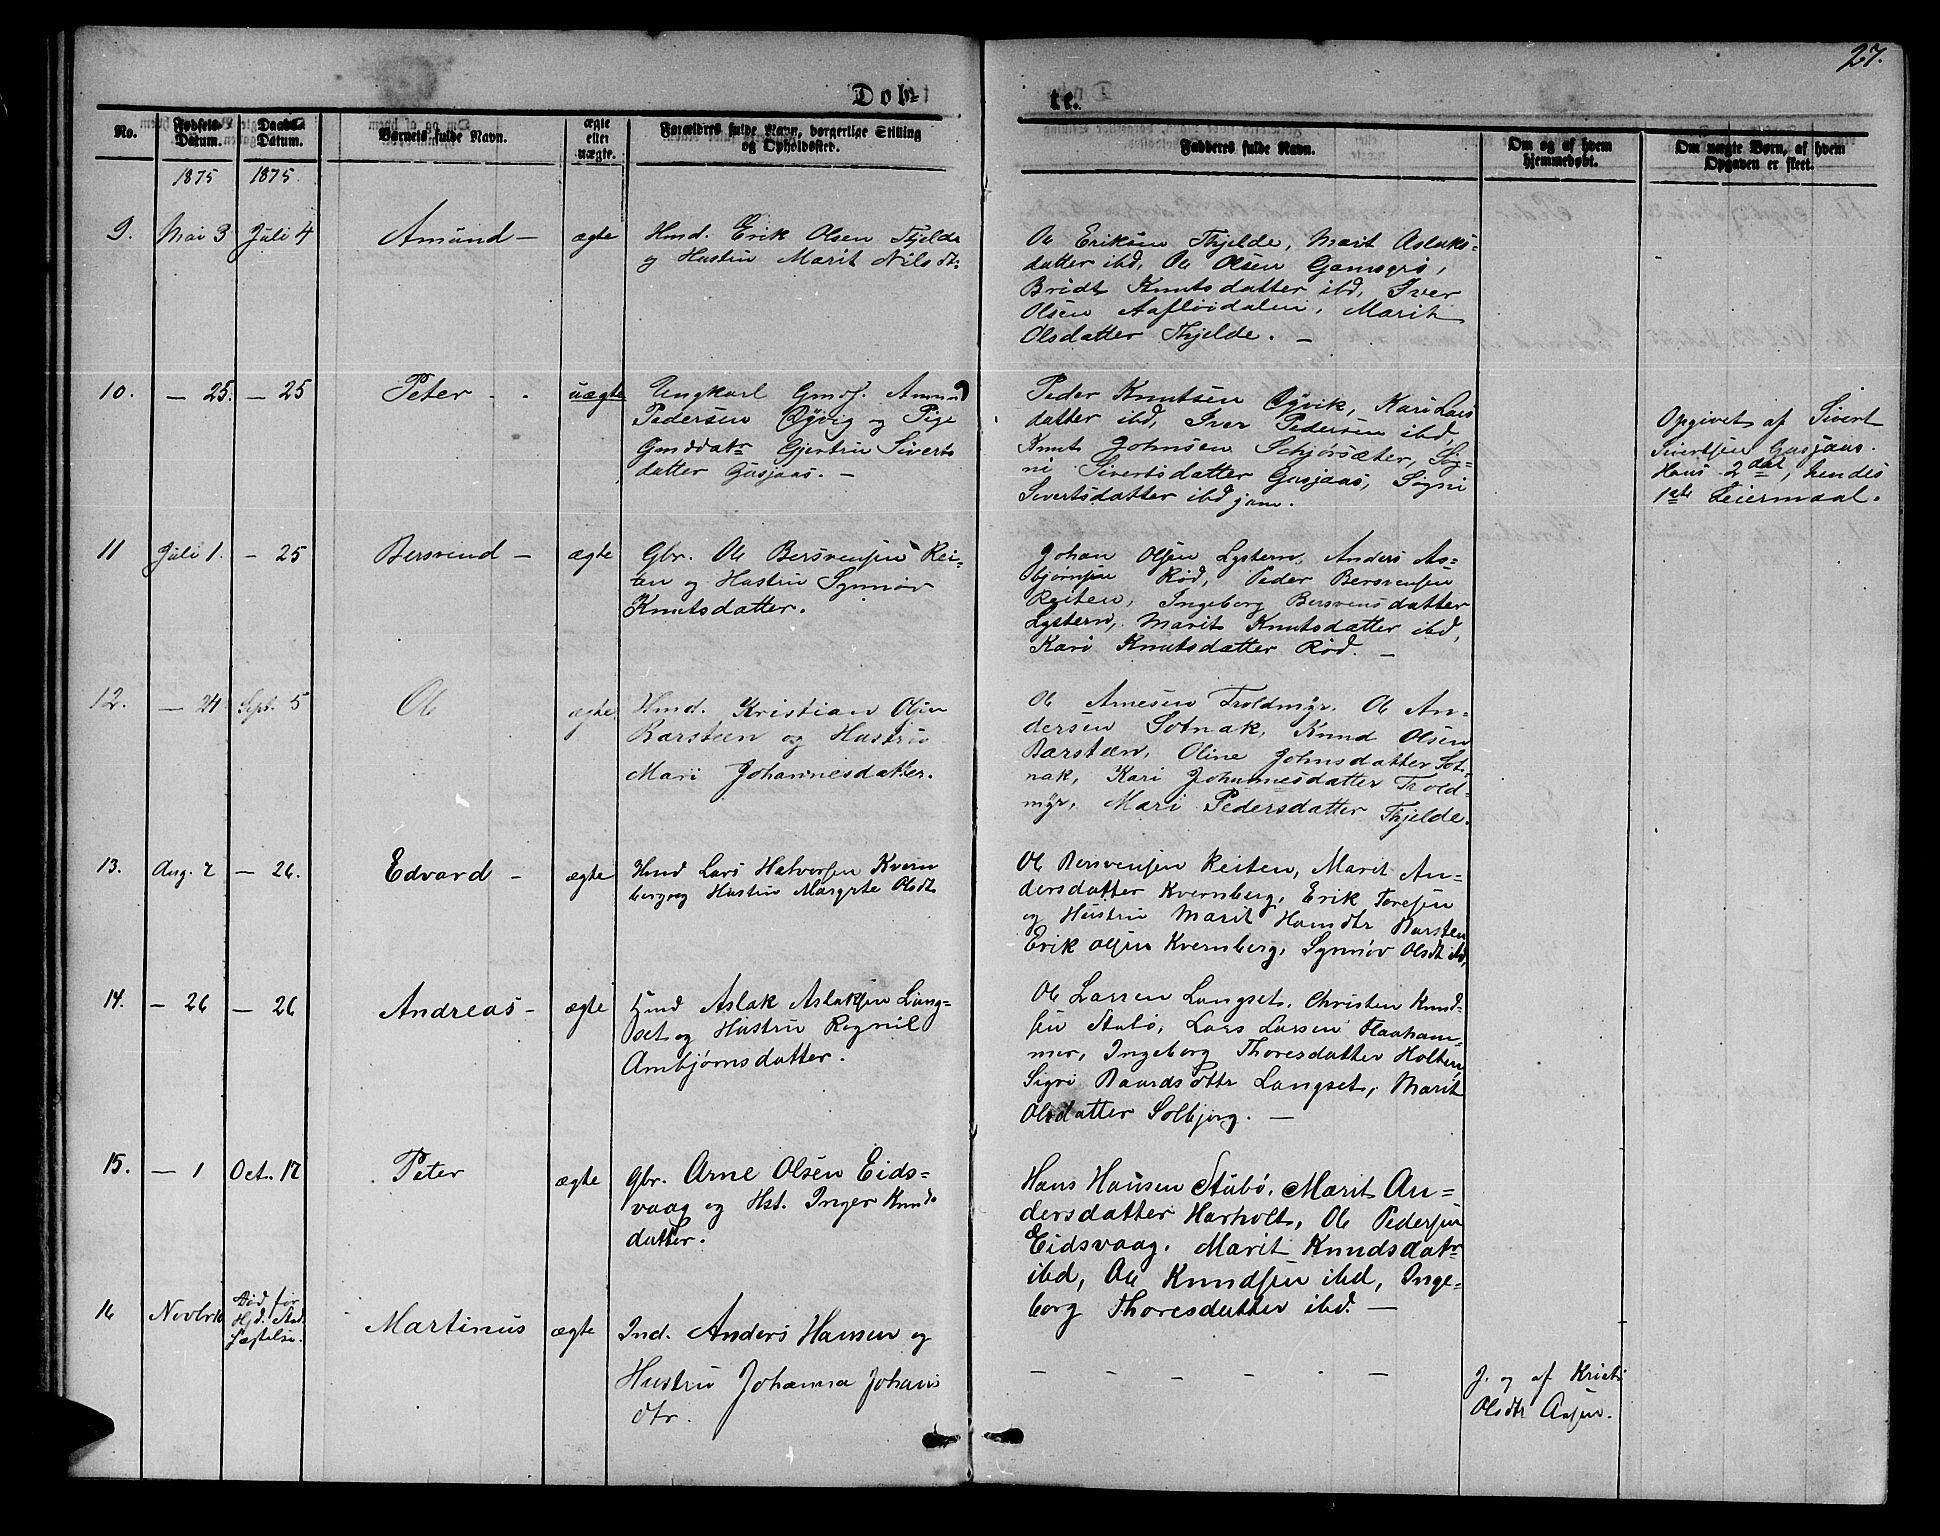 27.
Døbte.
No.
Fødsels-Datum.
Daabs-Datum.
Barnets fulde Navn.
ægte eller uægte.
Forældres fulde Navn, borgerlige Stilling og Opholdssted.
Fadderes fulde Navn.
Om og af hvem hjemmedøbt.
Om uægte Børn, af hvem Opgaven er skeet.
1875 1875.
9. Mai 3 Juli 4 Amund — ægte
Hmd. Erik Olsen Thjelde
og Hustru Marit Nilsdtr
Ole Eriksen Thjelde, Marit Aslaks=
datter ibd, Ole Olsen
Bridt Knutsdatter ibd, Iver
Olsen Aafløidalen, Marit
Olsdatter Thjelde. —
10. — 25. — 25 Peter - - uægte
Ungkarl Gmdf.
Pedersen Øyvig og Pige
Gmddatr Gjertru Siverts
datter Gusjaas. —
Peder Knutsen Øyvik, Kari Lars
datter ibd, Iver Pedersen ibd,
Knut Johnsen Schjørsæter, Sig=
ni Sivertsdatter Gusjaas, Signi
Sivertsdatter ibd jom.
Opgivet af Sivert
Sivertsen Gusjaas.
Hans 2det, hendes
1ste Leiermaal.
11 Juli 1. — 25 Bersvend — ægte
Gbr. Ole Bersvensen Rei=
ten og Hustru Synnøv
Knutsdatter.
Johan Olsen Lystern, Anders As=
bjørnsen Rød, Peder Bersvensen
Reiten, Ingeborg Bersvensdatter
Lystern, Marit Knutsdatter ibd,
Kari Knutsdatter Rød. —
12. — 24 Sept. 5 Ole ægte
Hmd. Kristian Olsen
Barsteen og Hustru
Mari Johannesdatter.
Ole Arnesen Troldmyr. Ole An=
dersen Sotnak, Knud Olsen
Barsteen, Oline Johnsdatter Sot=
nak, Kari Johannesdatter Trold=
myr, Mari Pedersdatter Thjelde.
13. Aug. 2 — 26. Edvard - ægte
Hmd Lars Halvorsen Kvern
berg og Hustru Margrte Olsdt
Ole Bersvensen Reiten, Marit An=
dersdatter Kvernberg, Erik Toresen
og Hustru Marit Hansdtr Barsten
Erik Olsen Kvernberg, Synnøv Olsdt ibd,
14. — 26 — 26 Andreas - ægte
Hmd Aslak Aslaksen Lang=
set og Hustru Ragnil
Ambjørnsdatter.
Ole Larsen Langset, Christen Knud=
sen Stubø, Lars Larsen Flaaham=
mer, Ingeborg Thoresdatter Holten,
Sigri Baardsdttr Langset, Marit
Olsdatter Solbjørg. —
15. — 1 Oct. 17 Peter ægte
Gbr. Arne Olsen Eids=
vaag og Hst. Inger Knuds
datter.
Hans Hansen Stubø, Marit An=
dersdatter Harholt, Ole Pedersen
Eidsvaag, Marit Knudsdatr
ibd, Ole Knudsen ibd, Inge=
borg Thoresdatter ibd. —
16 Novbr 16 Død før
Hjd. Stad
fæstelse. Martinus ægte
Ind. Anders Hansen og
Hustru Johanna Johans
dtr.
— — — — — —
J. og af Kristi
Olsdtr Aasen.